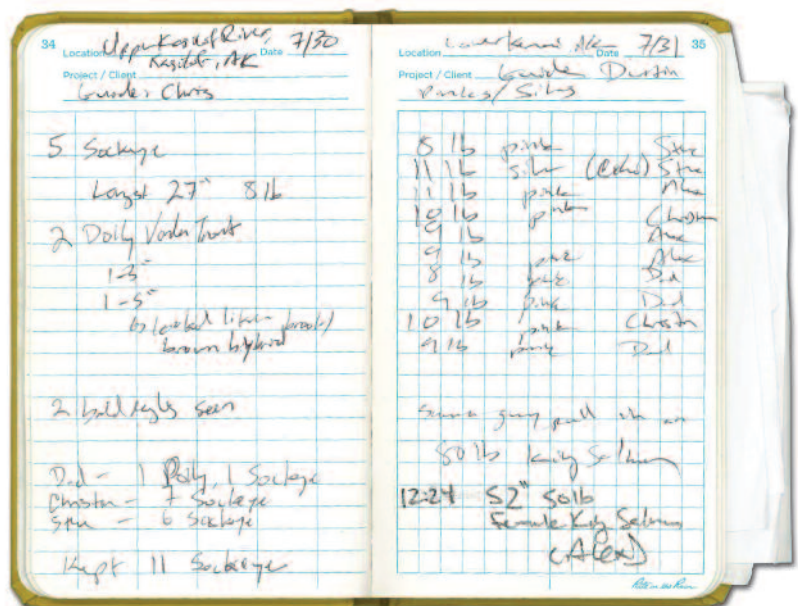 34
Location Upper Kasilof River, Date 7/30
Kasilof, AK
Project / Client
Guide: Chris
5 Sockeye
Largest 27" 8 lb
2 Dolly Varden Trout
1-3"
1-5"
looked like a brook/
brown hybrid
2 bald eagles seen
Dad - 1 Dolly, 1 Sockeye
Christin - 7 Sockeye
- 6 Sockeye
Kept 11 Sockeye
Location Lower Kenai, AK Date 7/31 35
Project / Client Guide: Dustin
Pinks / Silvers
8 lb pink Steve
11 lb silver (Coho) Steve
11 lb pink Alex
10 lb pink Christin
9 lb Alex
9 lb pink Alex
8 lb pink Dad
9 lb pink Dad
10 lb pink Christin
9 lb pink Dad
guy pull in an
80 lb King Salmon
12:24 52" 50lb
Female King Salmon
(Alex)
Rite in the Rain